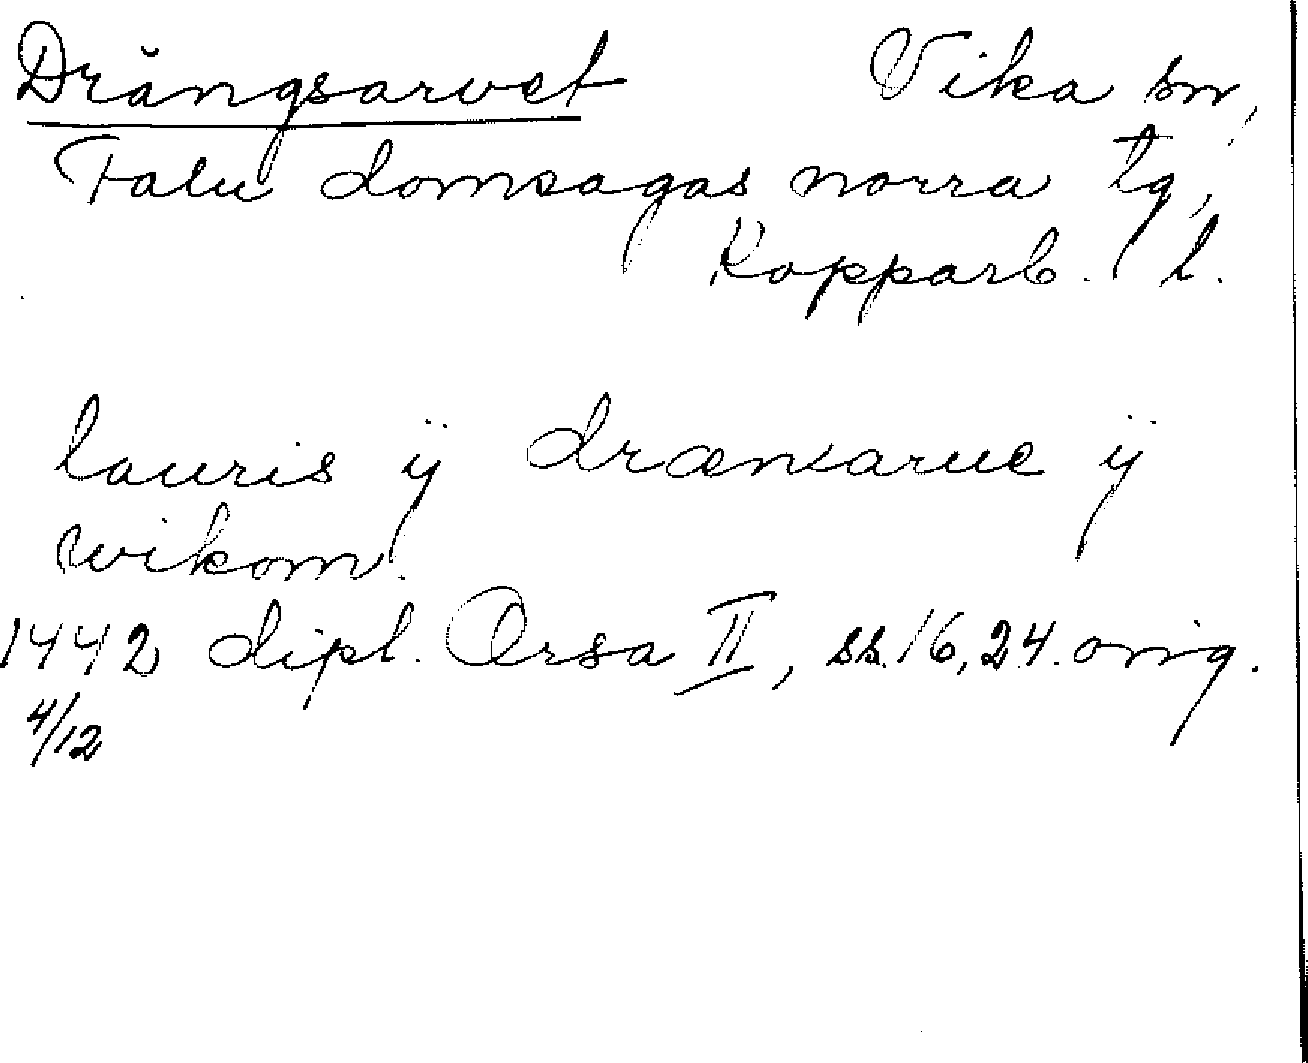 Drängsarvet Vika sn,
Falu domsagas norra tg,
Kopparb. l.
lauris ij drænxarue ij
wikom.
1442 dipl. Orsa II, ss. 16, 24. orig.
4/12